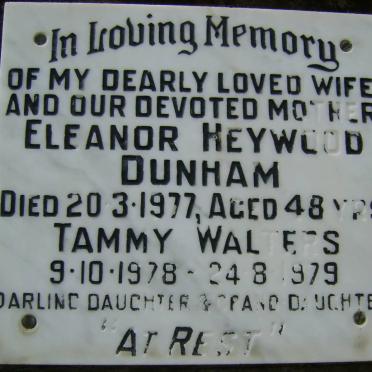 In Loving Memory
OF MY DEARLY LOVED WIFE
AND OUR DEVOTED MOTHER
ELEANOR HEYWOOD
DUNHAM
DIED 20·3·1977, AGED 48 YRS
TAMMY WALTERS
9·10·1978 - 24·8·1979
DARLING DAUGHTER & GRAND DAUGHTER
"AT REST"